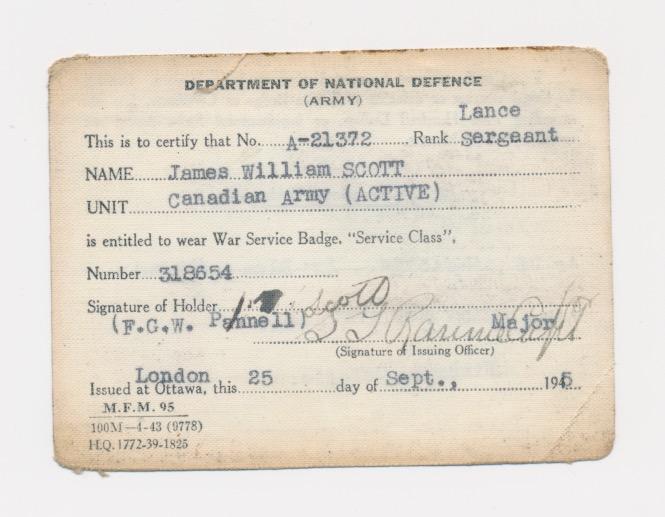 DEPARTMENT OF NATIONAL DEFENCE
(ARMY)
Lance
This is to certify that No. A-21372 Rank Sergeant
NAME James William SCOTT
UNIT Canadian Army (ACTIVE)
is entitled to wear War Service Badge, "Service Class",
Number 318654
Signature of Holder Scott
(F.G.W. Pannell) Major
(Signature of Issuing Officer)
London
Issued at Ottawa, this 25 day of Sept., 1945
M.F.M. 95
100M—4-43 (9778)
H.Q. 1772-39-1825